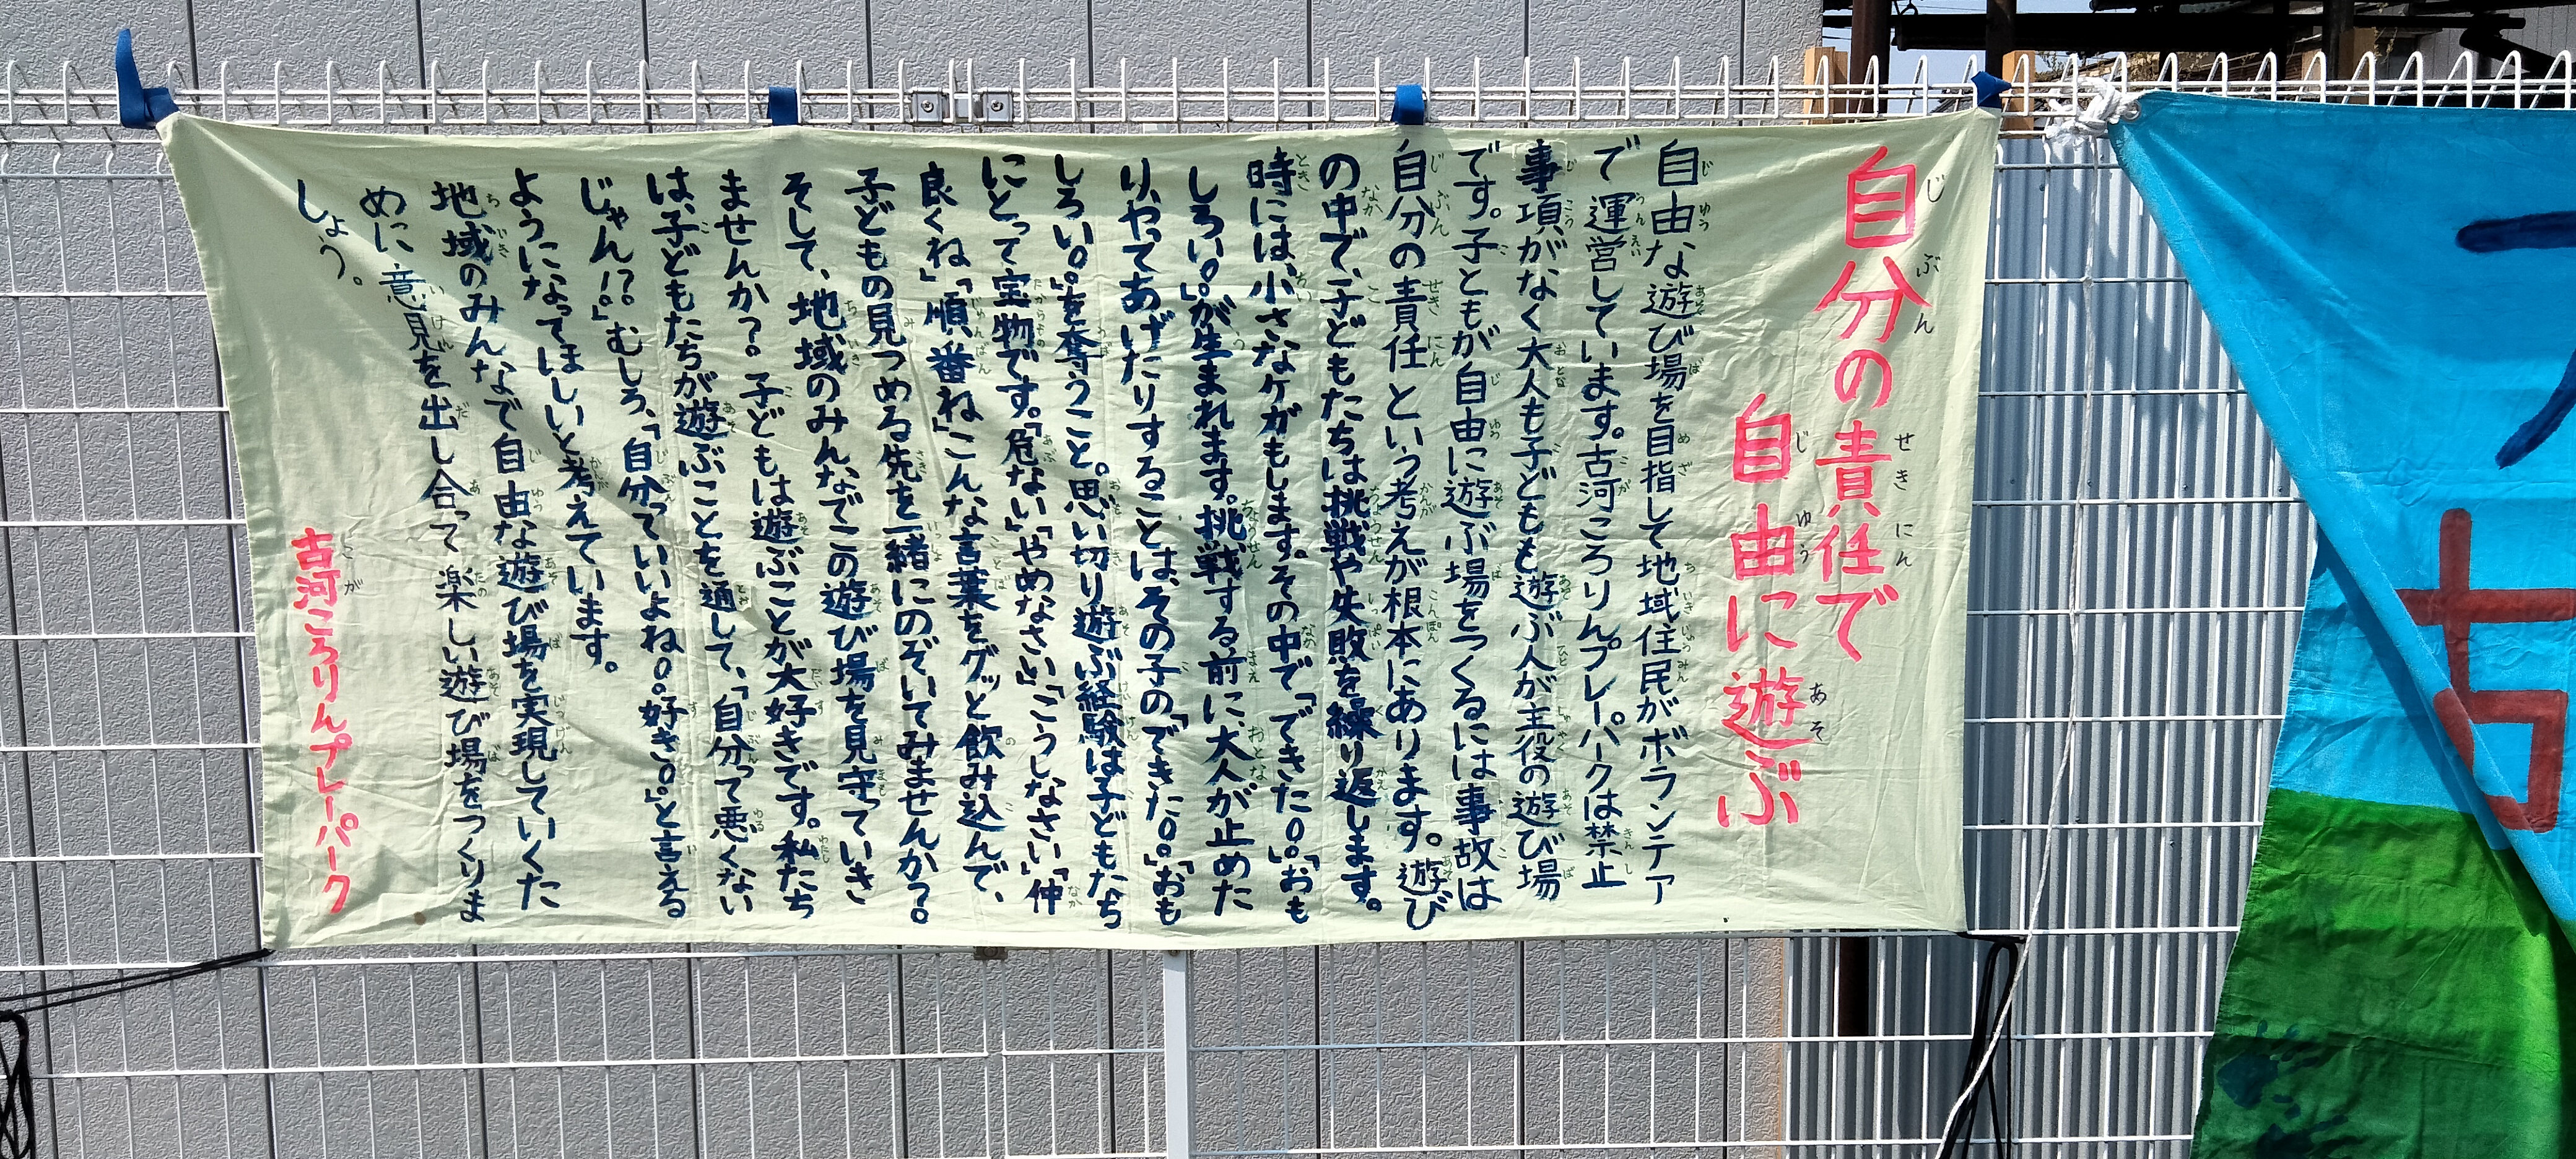 自分の責任で
自由に遊ぶ
自由な遊び場を目指して地域住民がボランティア
で運営しています。古河ころりんプレーパークは禁止
事項がなく大人も子どもも遊ぶ人が主役の遊び場
です。子どもが自由に遊ぶ場をつくるには事故は
自分の責任という考えが根本にあります。遊び
の中で、子どもたちは挑戦や失敗を繰り返します。
時には、小さなケガもします。その中で「できた。。」「おも
しろい。。」が生まれます。挑戦する前に、大人が止めた
り、やってあげたりすることは、その子の「できた。。」「おも
しろい。。」を奪うこと。思い切り遊ぶ経験は子どもたち
にとって宝物です。「危ない」「やめなさい」「こうしなさい」「仲
良くね」「順番ね」こんな言葉をグッと飲み込んで、
子どもの見つめる先を一緒にのぞいてみませんか?。
そして、地域のみんなでこの遊び場を見守っていき
ませんか?。子どもは遊ぶことが大好きです。私たち
は、子どもたちが遊ぶことを通して、「自分って悪くない
じゃん!?。」むしろ、「自分っていいよね。。好き。。」と言える
ようになってほしいと考えています。
地域のみんなで自由な遊び場を実現していくた
めに意見を出し合って楽しい遊び場をつくりま
しょう。
古河ころりんプレーパーク